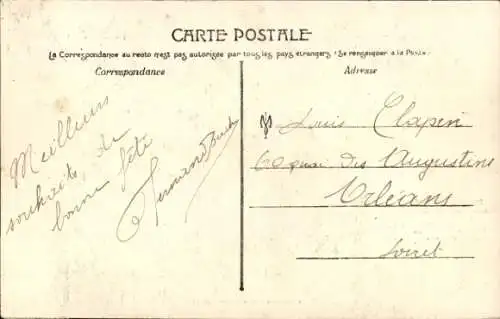 CARTE POSTALE
La Correspondance au recto n'est pas autorisée par tous les pays étrangers (Se renseigner à la Poste)
Correspondance
Adresse
Meilleurs
souhaits de
bonne fête
Fernand
Louis Clapin
60 quai des Augustins
Orléans
Loiret